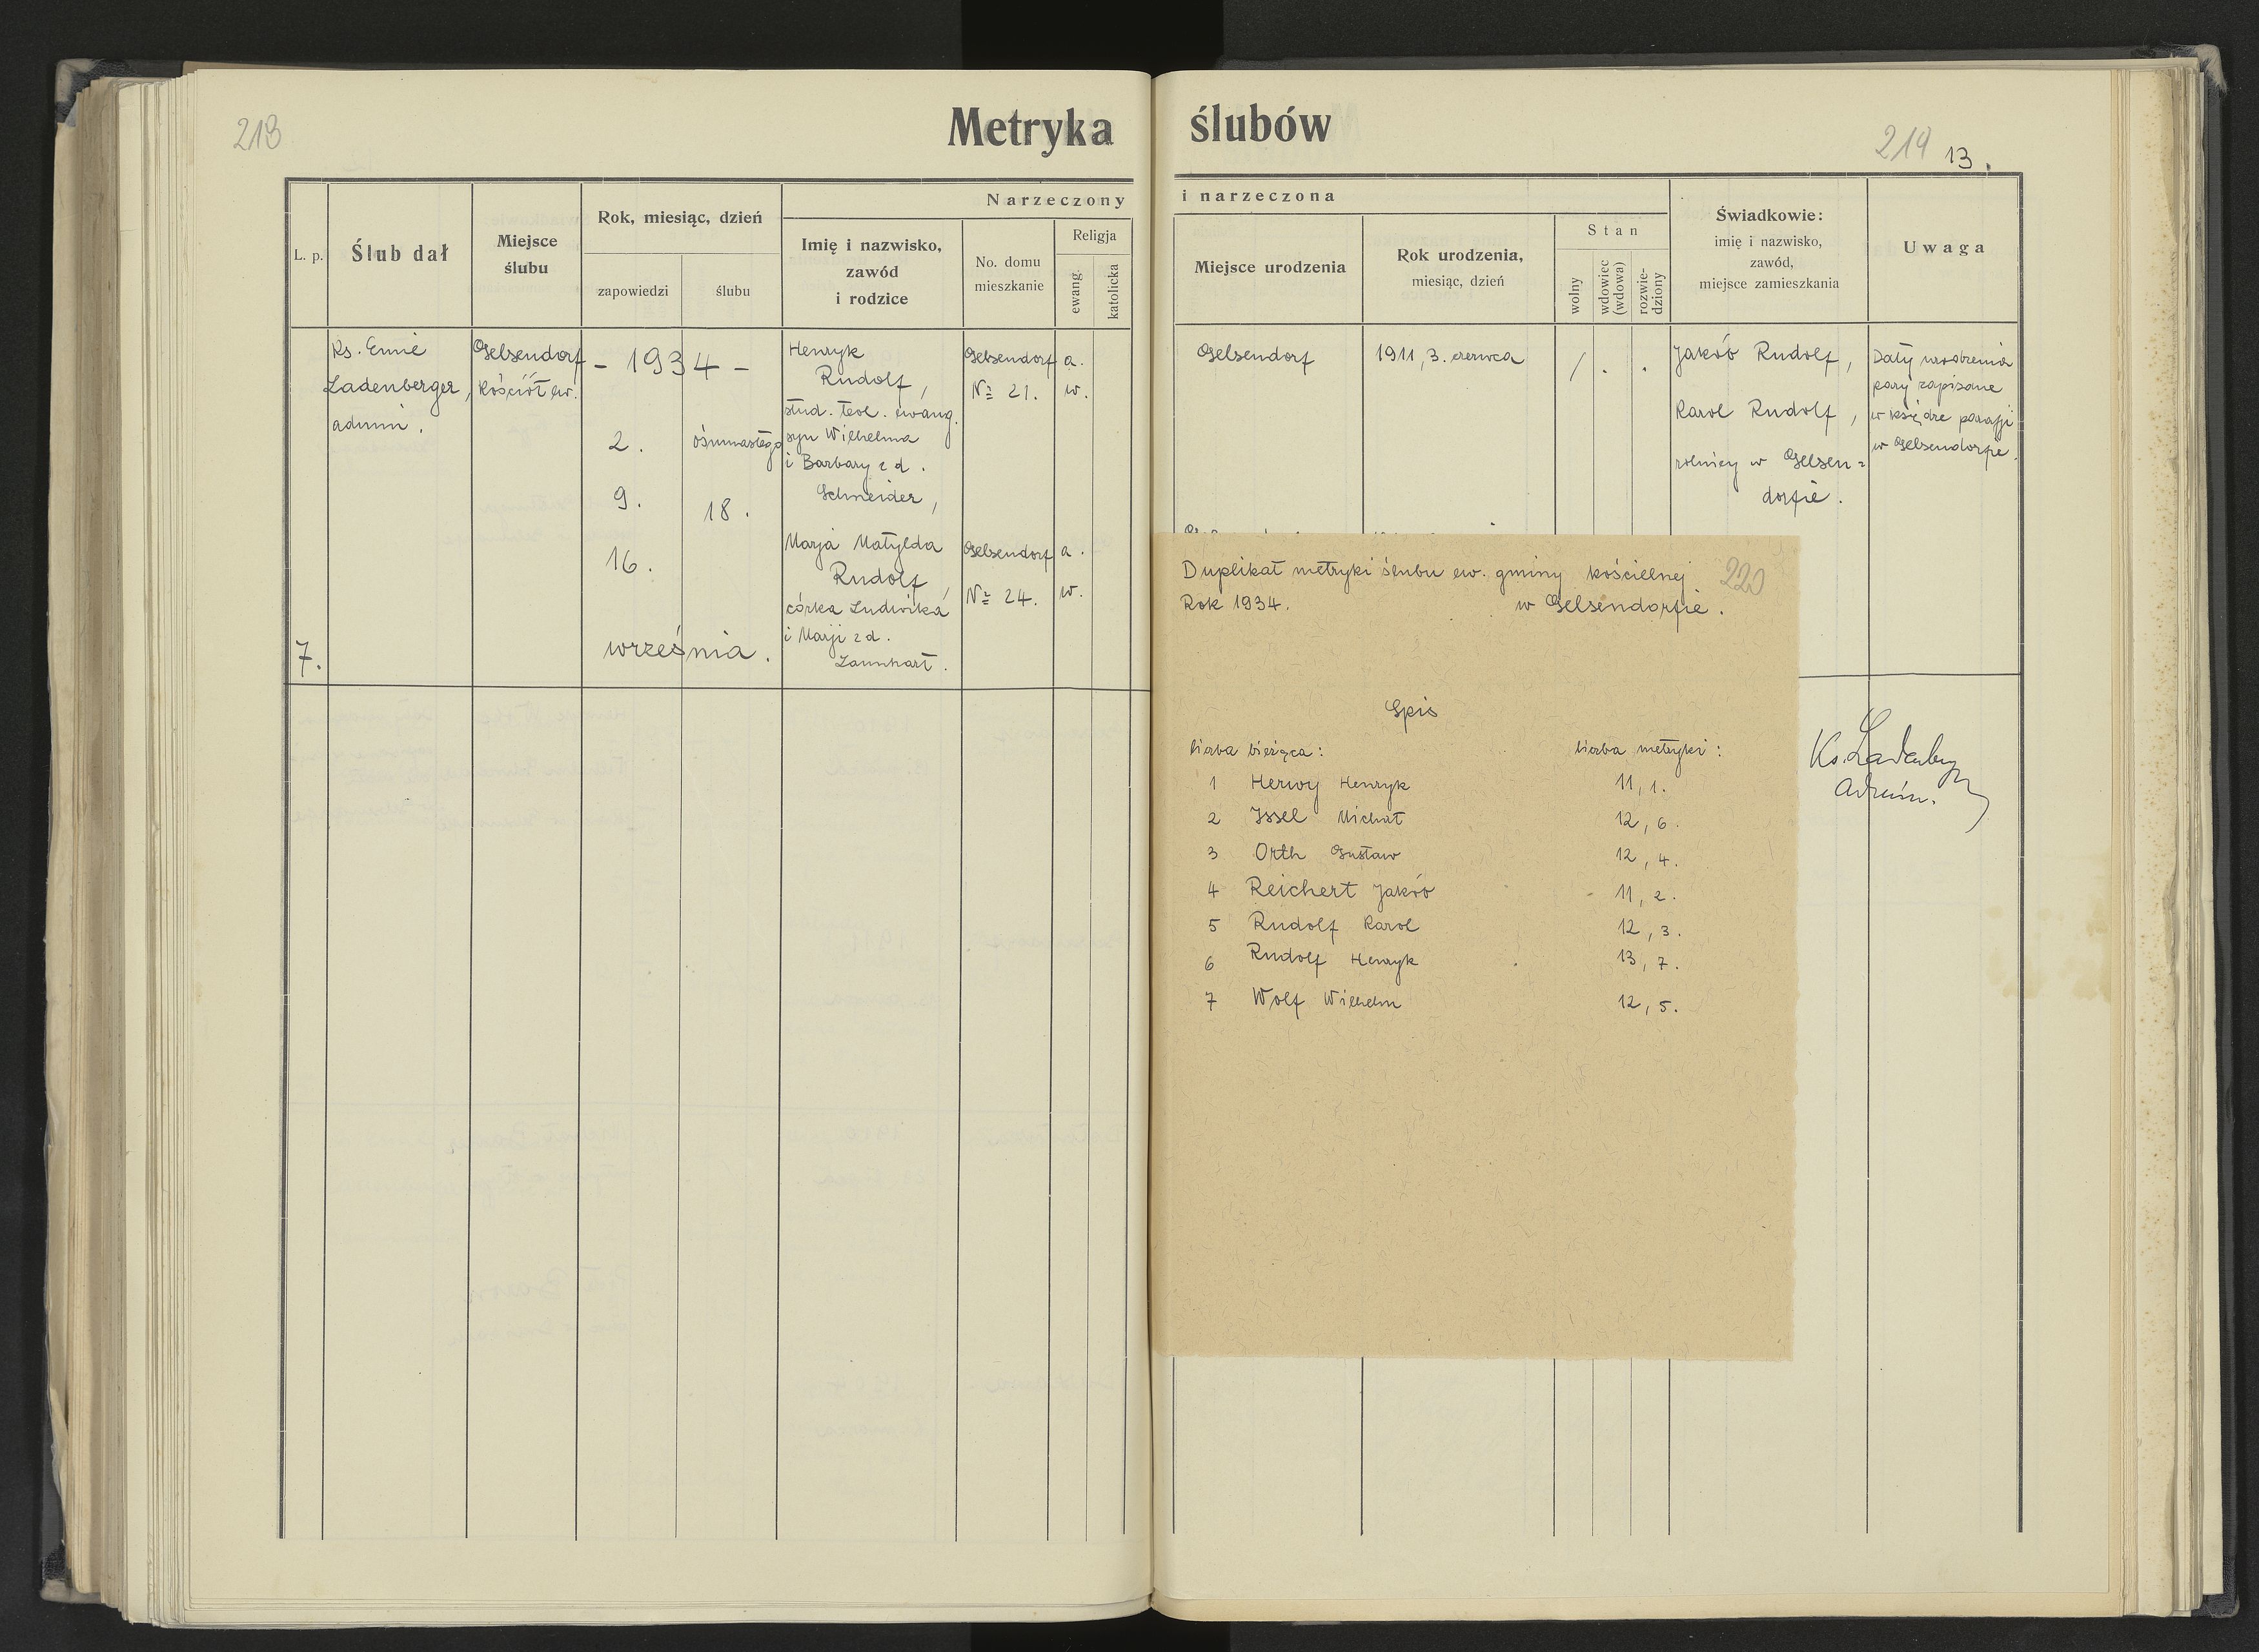 218
Metryka ślubów
219 13.
L. p.
Ślub dał
Miejsce ślubu
Rok, miesiąc, dzień
zapowiedzi
ślubu
Narzeczony i narzeczona
Imię i nazwisko,
zawód
i rodzice
No. domu
mieszkanie
Religja
ewang.
katolicka
Miejsce urodzenia
Rok urodzenia,
miesiąc, dzień
Stan
wolny
wdowiec
(wdowa)
rozwie-
dziony
Świadkowie:
imię i nazwisko,
zawód,
miejsce zamieszkania
Uwaga
7.
Ks. Emil
Ladenberger,
admin.
Gelsendorf
kościół ew.
- 1934 -
2.
9.
16.
ośmnastego
18.
września.
Henryk
Rudolf,
stud. teol. ewang.
syn Wilhelma
i Barbary z d.
Schneider,
Gelsendorf
№ 21.
a.
w.
Marja Matylda
Rudolf,
córka Ludwika
i Marji z d.
Lannhart.
Gelsendorf
№ 24.
a.
w.
Gelsendorf
1911, 3. czerwca
/ . .
Jakób Rudolf,
Karol Rudolf,
rolnicy w Gelsen=
dorfie.
Daty urodzenia
pary zapisane
w księdze parafji
w Gelsendorfie.
Ks. Ladenberger
Admin.
Duplikat metryki ślubu ew. gminy kościelnej 220
Rok 1934. w Gelsendorfie.
Spis
liczba bieżąca: liczba metryki:
1 Herwy Henryk 11, 1.
2 Issel Michał 12, 6.
3 Orth Gustaw 12, 4.
4 Reichert Jakób 11, 2.
5 Rudolf Karol 12, 3.
6 Rudolf Henryk 13, 7.
7 Wolf Wilhelm 12, 5.